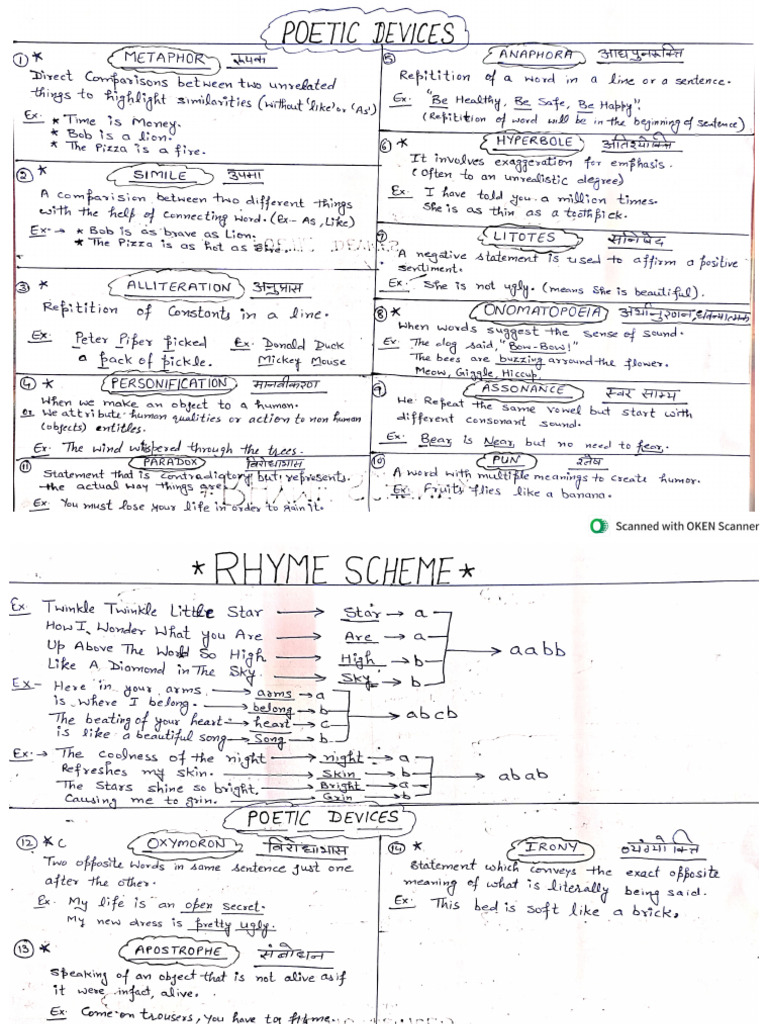 POETIC DEVICES
① * METAPHOR रूपक
Direct Comparisons between two unrelated
things to highlight similarities (without 'like' or 'As')
Ex: * Time is Money.
* Bob is a lion.
* The Pizza is a fire.
② * SIMILE उपमा
A comparision between two different things
with the help of connecting word. (Ex- As, Like)
Ex:→ * Bob is as brave as Lion.
* The Pizza is as hot as
③ * ALLITERATION अनुप्रास
Repitition of Constants in a line.
Ex: Peter Piper picked
a pack of pickle.
Ex: Donald Duck
Mickey Mouse
④ * PERSONIFICATION मानवीकरण
When we make an object to a human.
or We attribute human qualities or action to non human
(objects) entitles.
Ex: The wind wispered through the trees.
⑪ PARADOX विरोधाभास
Statement that is contradiqtory but represents
the actual way things are.
Ex: You must lose your life in order to gain it.
⑤ * ANAPHORA
Repitition of a word in a line or a sentence.
Ex: "Be Healthy, Be Safe, Be Happy".
(Repitition of word will be in the beginning of sentence)
⑥ * HYPERBOLE अतिश्योक्ति
It involves exaggeration for emphasis.
(Often to an unrealistic degree)
Ex: I have told you a million times.
She is as thin as a toothpick.
⑦ LITOTES
A negative statement is used to affirm a positive
sentiment.
Ex: She is not ugly. (means She is beautiful).
⑧ * ONOMATOPOEIA
When words suggest the sense of sound.
Ex: The dog said, "Bow-Bow!"
The bees are buzzing arround the flower.
Meow, Giggle, Hiccup
⑨ ASSONANCE स्वर साम्य
We Repeat the same vowel but start with
different consonant sound.
Ex: Bear is Near, but no need to fear.
⑩ PUN श्लेष
A word with multiple meanings to create humor.
Ex: Fruits flies like a banana.
Scanned with OKEN Scanner
* RHYME SCHEME *
Ex: Twinkle Twinkle Little Star → Star → a
How I Wonder What you Are → Are → a
Up Above The World So High → High → b
Like A Diamond in The Sky → Sky → b
→ aabb
Ex- Here in your arms → arms → a
is where I belong. → belong → b
The beating of your heart → heart → c
is like a beautiful song → Song → b
→ abcb
Ex:→ The coolness of the night → night → a
Refreshes my skin. → Skin → b
The Stars shine so bright. → Bright → a
Causing me to grin. → Grin → b
→ abab
POETIC DEVICES
⑫ * C OXYMORON विरोधाभास
Two opposite words in same sentence just one
after the other.
Ex: My life is an open secret.
My new dress is pretty ugly.
⑬ * APOSTROPHE संबोधन
Speaking of an object that is not alive as if
it were infact, alive.
Ex: Come on trousers, you have to fit me.
⑭ * IRONY व्यंग्योक्ति
Statement which conveys the exact opposite
meaning of what is literally being said.
Ex: This bed is soft like a brick.